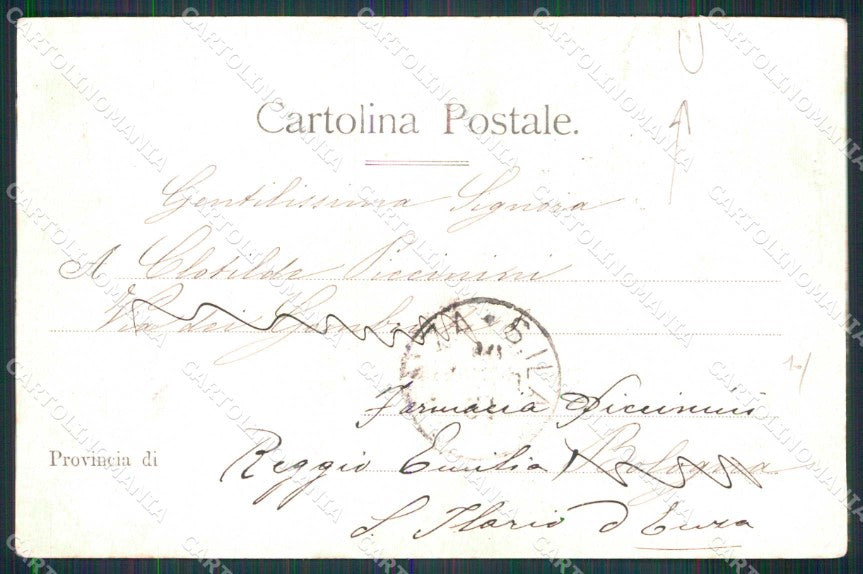 Cartolina Postale.
Gentilissima Signora
A Clotilde Piccinini
Via dei
Farmacia Piccinini
Provincia di Reggio Emilia Bologna
S. Ilario d'Enza
CARTOLINOMANIA